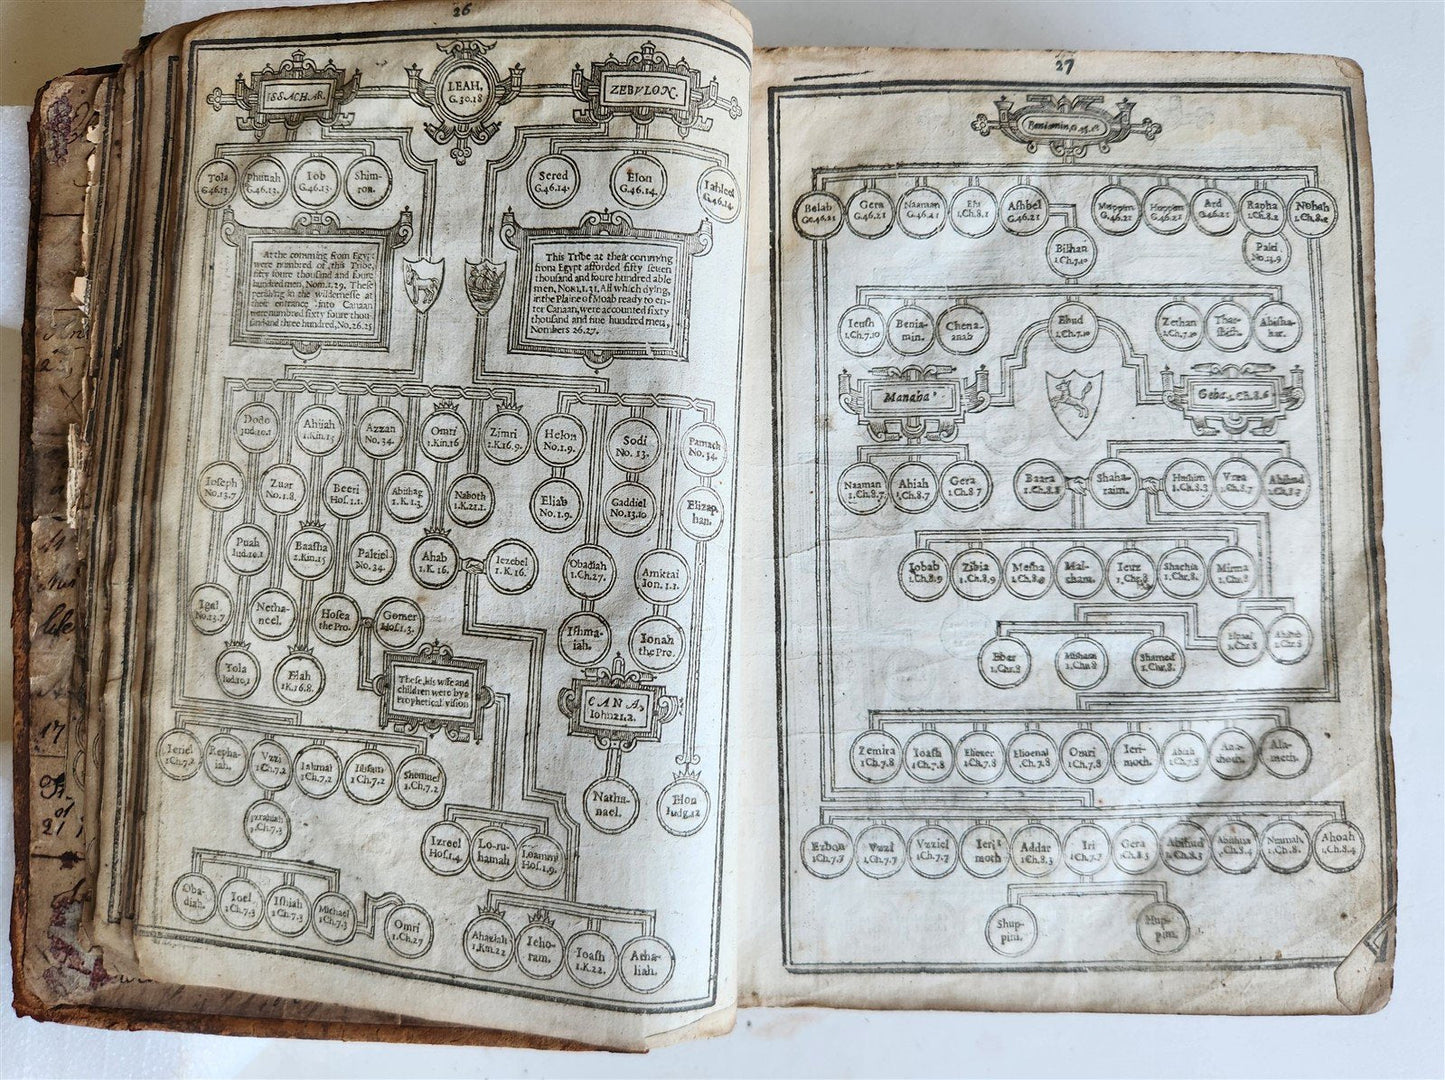 26
ISSACHAR.
LEAH.
G.30.18
ZEBVLON.
Tola
G.46.13.
Phuuah
G.46.13.
Iob
G.46.13.
Shim-
ron.
Sered
G.46.14.
Elon
G.46.14.
Iahleel
G.46.14.
At the comming from Egypt
were numbred of this Tribe,
fifty foure thousand and foure
hundred men, Nom.1.29. These
perishing in the wildernesse at
their entrance into Canaan
were numbred sixty foure thou-
sand and three hundred, No.26.25
This Tribe at their comming
from Egypt afforded fifty seuen
thousand and foure hundred able
men, Nom.1.31. All which dying,
in the Plaine of Moab ready to en-
ter Canaan, were accounted sixty
thousand and fiue hundred men,
Nombers 26.27.
Dodo
Iud.10.1
Ahiiah
1.Kin.15
Azzan
No.34.
Omri
1.Kin.16
Zimri
1.K.16.9.
Helon
No.1.9.
Sodi
No.13.
Parnach
No.34.
Ioseph
No.13.7
Zuar
No.1.8.
Beeri
Hos.1.1.
Abishag
1.K.1.3.
Naboth
1.K.21.1.
Eliab
No.1.9.
Gaddiel
No.13.10
Elizap
han.
Puah
Iud.10.1
Baasha
1.Kin.15
Paltiel
No.34.
Ahab
1.K.16.
Iezebel
1.K.16.
Obadiah
1.Ch.27.
Amittai
Ion.1.1.
Igal
No.13.7
Netha-
neel.
Hosea
the Pro.
Gomer
Hos.1.3.
Ishma-
iah.
Ionah
the Pro.
Tola
Iud.10.1
Elah
1K.16.8.
These, his wife and
children were by a
Prophetical vision
CANA,
Iohn 21.2.
Ieriel
1Ch.7.2
Repha-
iah.
Vzzi
1Ch.7.2
Iahmai
1Ch.7.2
Iibsam
1Ch.7.2
Shemuel
1Ch.7.2
Natha-
nael.
Elon
Iudg.12
Izrahiah
1.Ch.7.3
Izreel
Hos.1.4.
Lo-ru-
hamah
Loammi
Hos.1.9.
Oba-
diah.
Ioel
1Ch.7.3
Ishiah
1Ch.7.3
Michael
1Ch.7.3
Omri
1.Ch.27
Ahaziah
1.Kin.22
Ieho-
ram.
Ioash
1.K.22.
Atha-
liah.
27
Beniamin,
Belah
Ge.46.21
Gera
G.46.21
Naaman
G.46.21
Ehi
1.Ch.8.1
Ashbel
G.46.21
Muppim
G.46.21
Huppim
G.46.21
Ard
G.46.21
Rapha
1.Ch.8.2
Nohah
1.Ch.8.2
Bilhan
1.Ch.7.10
Palti
No.13.9
Ieush
1.Ch.7.10
Benia-
min.
Chena-
anah
Ehud
1.Ch.7.10
Zethan
1.Ch.7.10
Thar-
shish.
Ahisha-
har.
Manaha
Geba.1.Ch.8.6
Naaman
1.Ch.8.7.
Ahiah
1.Ch.8.7
Gera
1.Ch.8.7
Baara
1.Ch.8.8
Shaha-
raim.
Hushim
1.Ch.8.8
Vzza
1.Ch.8.7
Ahihud
Iobab
1.Ch.8.9
Zibia
1.Ch.8.9
Mesha
1.Ch.8.9
Mal-
cham.
Ieuz
1.Chr.8
Shachia
1.Chr.8.
Mirma
1.Chr.8
Eber
1.Chr.8
Misham
1.Chr.8
Shamed
1.Chr.8.
Elpaal
1.Chr.8
Ahitub
1.Chr.8
Zemira
1.Ch.7.8
Ioash
1.Ch.7.8
Eliezer
1.Ch.7.8
Elioenai
1.Ch.7.8
Omri
1.Ch.7.8
Ieri-
moth.
Abiah
1.Ch.7.8
Ana-
thoth.
Ala-
meth.
Ezbon
1Ch.7.7
Vzzi
1.Ch.7.7
Vzziel
1.Ch.7.7
Ieri-
moth
Addar
1.Ch.8.3
Iri
1.Ch.7.7
Gera
1.Ch.8.3
Abihud
1.Ch.8.3
Abishua
1.Ch.8.4
Naamah,
1.Ch.8.
Ahoah
1.Ch.8.4
Shup-
pim.
Hup-
pim.